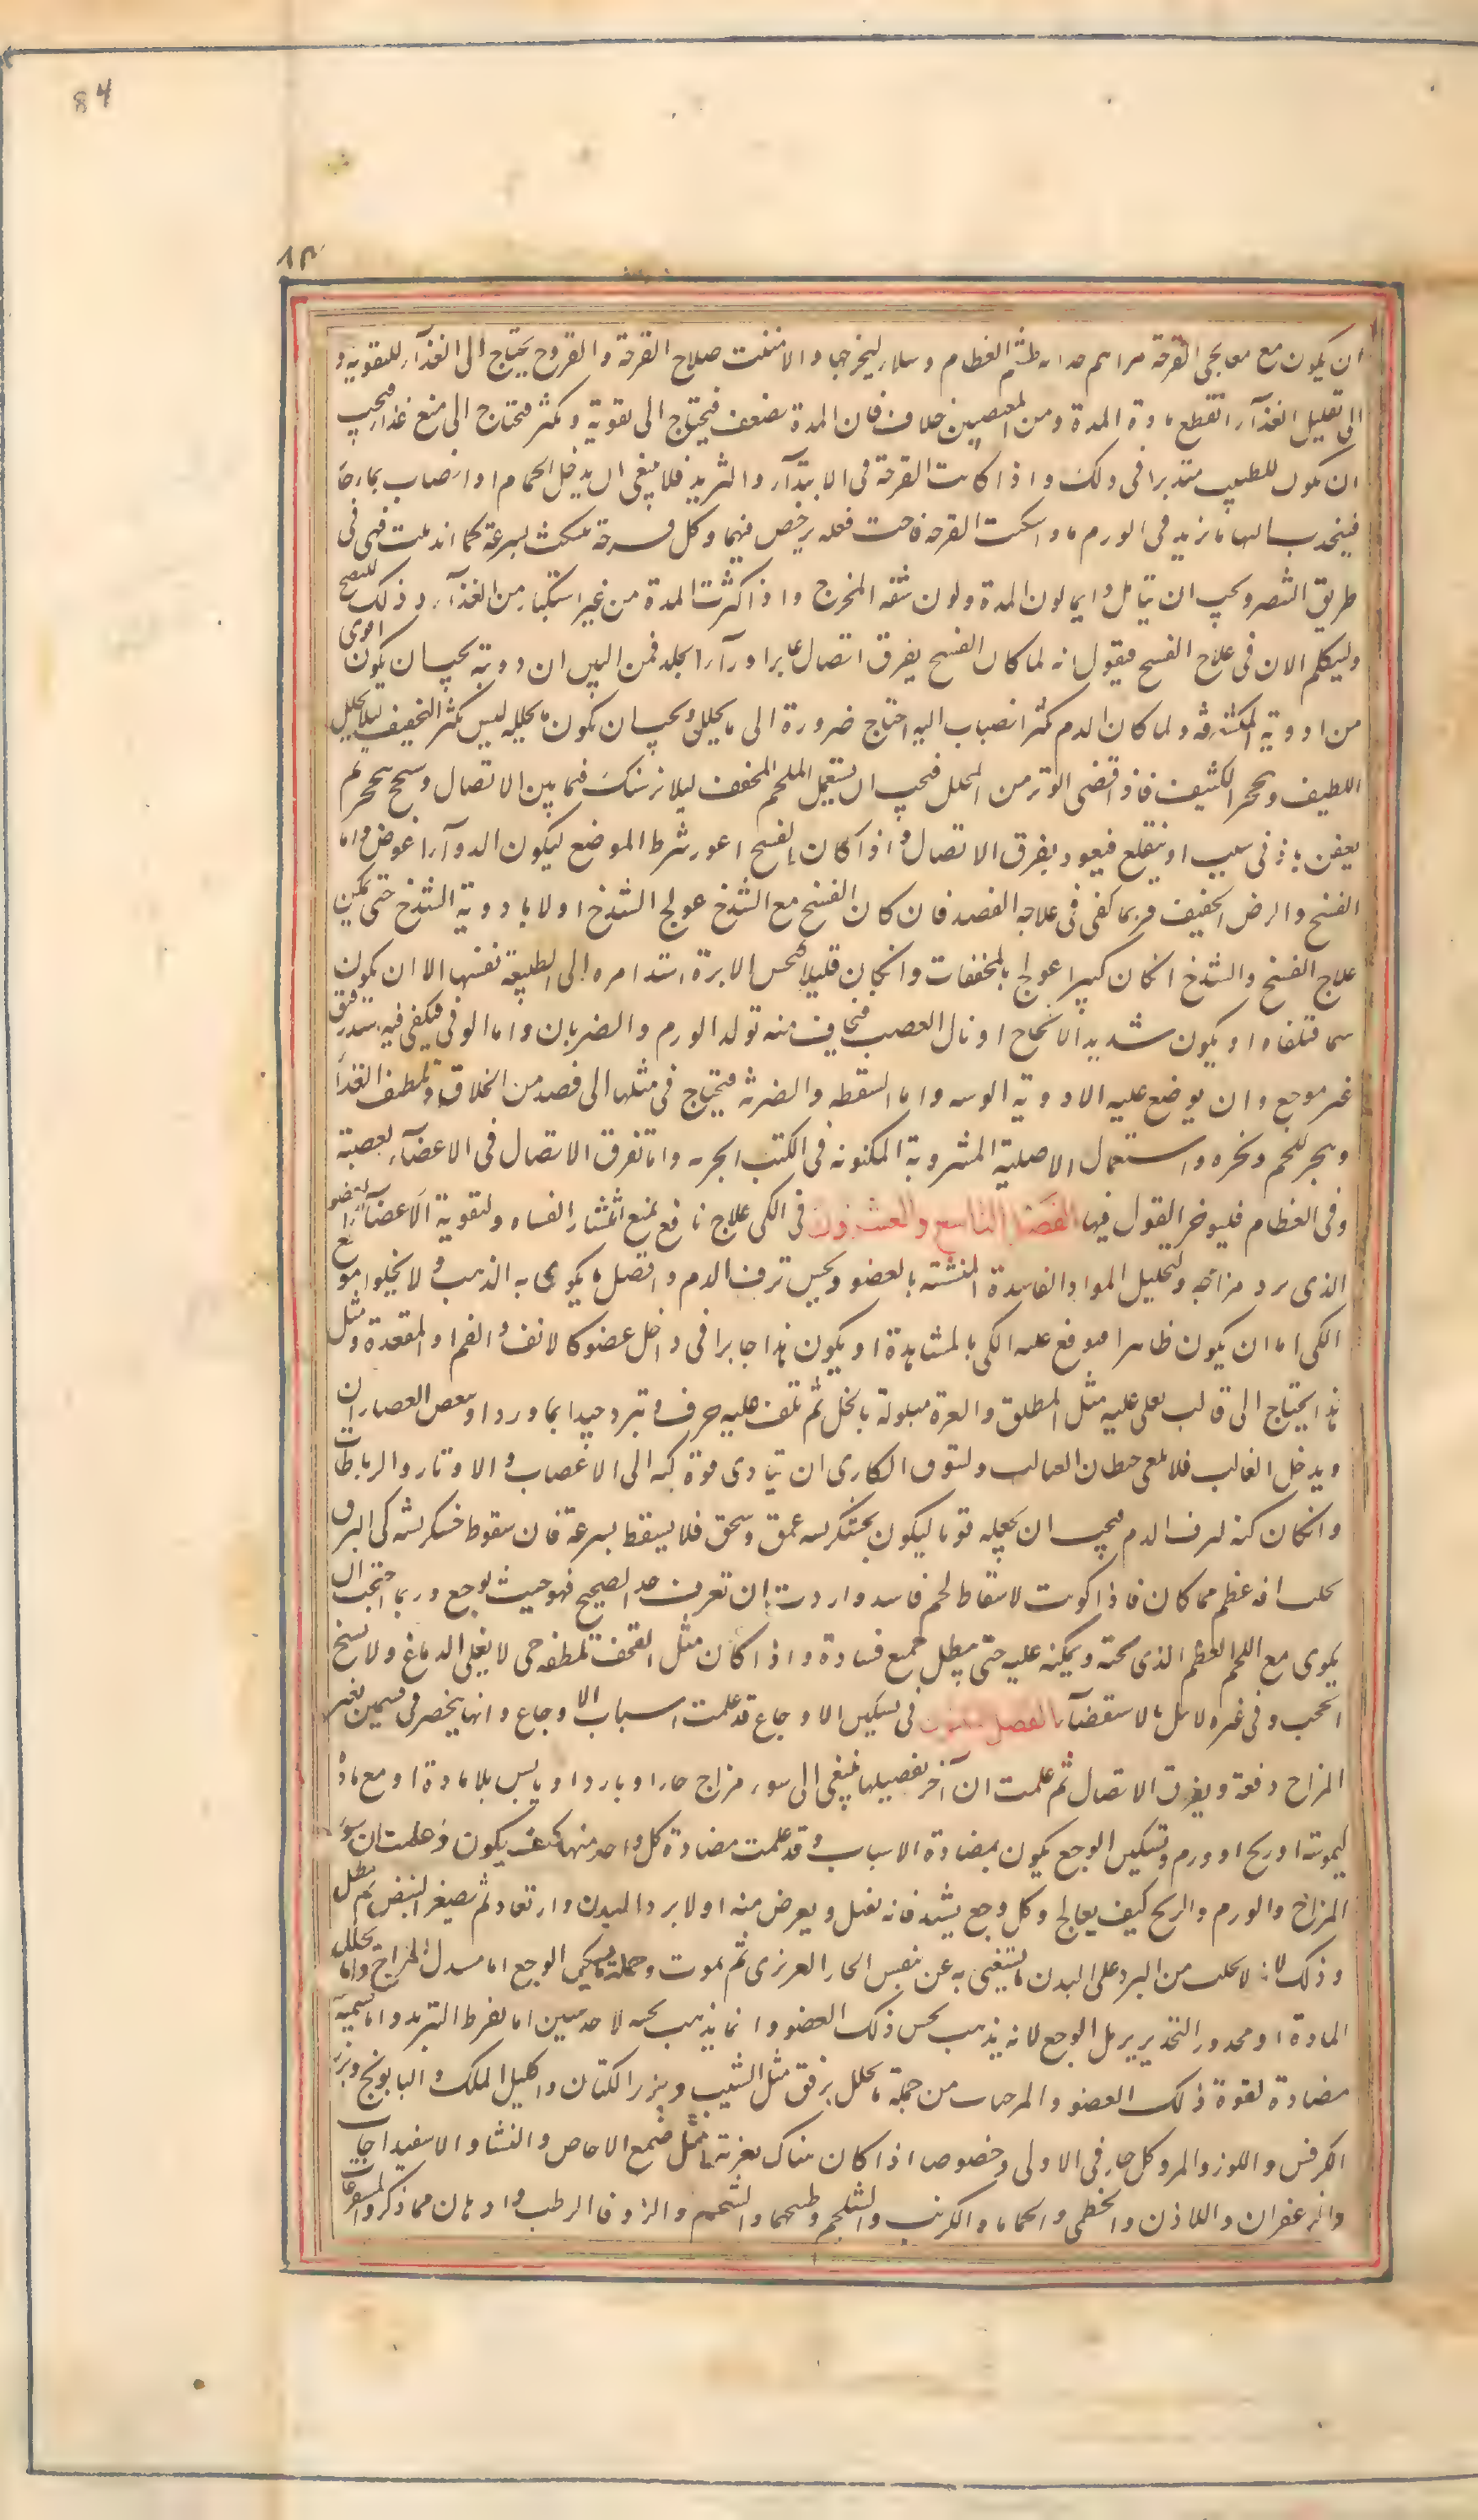 84
٨٣
ان يكون مع معالجى القرحة مراهم جذابة لهشيم العظام وسلاء ليخرجها والا منعت صلاح القرحة والقروح يحتاج الى الغذآء للتقوية و
الى تقليل الغذآء لقطع مادة المدة وبين المقتضيين خلاف فان المدة تضعف فيحتاج الى تقوية وتكثر فتحتاج الى منع غذا فيجب
ان يكون للطبيب متدبرا فى ذلك واذا كانت القرحة فى الابتدآء والتزيد فلا ينبغى ان يدخل الحمام او انصاب بماء حار
فينجذب اليها ما يزيد فى الورم فاذا سكنت القرحة وقاحت فلعله يرخص فيهما وكل قرحة تنكث بسرعة كلما اندملت فهى فى
طريق التنصر ويجب ان يتامل دايما لون المدة ولون شفة المخرج واذا كثرت المدة من غير استكثار من الغذآء وذلك للنضج
وليكلم الان فى علاج الفسخ فيقول انه لما كان الفسخ يفرق اتصال غايرا ورآء الجلد فمن البين ان ادويته يجب ان يكون اقوى
من ادوية المكشوفه ولما كان الدم كثر انصباب اليه احتاج ضرورة الى ما يحلل ويجب ان يكون ما يحلله ليس بكثير التجفيف ليلا يحلل
اللطيف ويحجر الكثيف فاذا قضى الوتر من المحلل فيجب ان يستعمل الملحم المجفف ليلا يرتبك فيما بين الاتصال وسخ يتحجر ثم
يعفن بادنى سبب او ينقلع فيعود يفرق الاتصال واذا كان الفسخ اغور شرط الموضع ليكون الدوآء اغوص واما
الفسخ والرض الخفيف فربما كفى فى علاجه الفصد فان كان الفسخ مع الشدخ عولج الشدخ اولا بادوية الشدخ حتى يمكن
علاج الفسخ والشدخ ان كان كبيرا عولج بالمجففات وان كان قليلا كنخس الابرة استد امره الى الطبيعة نفسها الا ان يكون
سما متلفا او يكون شديد الانخاج او نال العصب فيخاف منه تولد الورم والضربان واما الوفى فيكفى فيه شد رقيق
غير موجع وان يوضع عليه الادوية الوسه واما السقطة والضربة فيحتاج فى مثلها الى فصد من الخلاف وتلطيف الغذا
وهجر للحم ونحوه واستعمال الاصلية المشروبة المكتوبه فى الكتب الجزيه واما تفرق الاتصال فى الاعضآء لعصبية
وفى العظام فليوخر القول فيها الفصل التاسع والعشرون فى الكى علاج نافع لمنع انتشار الفساد ولتقوية الاعضآء لعضو
الذى برد مزاجه ولتحليل المواد الفاسدة المتشبثه بالعضو ويحبس نزف الدم وافضل ما يكوى به الذهب ولا يخلوا موقع
الكى اما ان يكون ظاهرا فيوقع عليه الكى بالمشاهدة او يكون هذا جابرا فى داخل عضو كالانف والفم والمقعدة ومثل
هذا يحتاج الى قالب يغلى عليه مثل الطلق والمغرة مبلولة بالخل ثم تلف عليه خرق وتبرد جيدا بماء ورد او ببعض العصارات
ويدخل القالب فلا يلقى حيطان القالب وليتوق الكارى ان تيادى قوة كيه الى الاعصاب والاوتار والرباطات
وان كان كيه لنزف الدم فيجب ان يجعله قويا ليكون لخشكريشه عمق وسخق فلا يسقط بسرعة فان سقوط خشكريشه كى النزف
يجلب افة عظم مما كان فاذا كويت لاسقاط لحم فاسد واردت ان تعرف حد الصحيح فهو حيث يوجع وربما احتجت ان
يكوى مع اللحم العظم الذى تحته ويمكنه عليه حتى يبطل جميع فسادة واذا كان مثل القحف تلطفه حى لا يغلى الدماغ ولا تشنج
الحجب وفى غيره لا تبال بالاستقضآء الفصل فى تسكين الاوجاع قد علمت اسباب الاوجاع وانها ينحصر فى قسمين تغير
المزاج دفعة ويفرق الاتصال ثم علمت ان آخر تفصيلها ينتهى الى سوء مزاج حار او بارد او يابس بلا مادة او مع مادة
كيموسة او ريح او ورم وتسكين الوجع يكون بمضادة الاسباب وقد علمت مضادة كل واحد منها كيف يكون وعلمت ان سوء
المزاج والورم والريح كيف يعالج وكل وجع يشتد فانه يقتل ويعرض منه اولا برد البدن وارتعاد ثم يصغر النبض ثم يبطل
وذلك لا يجلب من البرد على البدن ما يستغنى به عن نفس الحار الغريزى ثم يموت وجملة ما يسكن الوجع اما مبدل المزاج واما محلل
المادة او مخدر والتخدير يزيل الوجع لانه يذهب بحس ذلك العضو وانما يذهب بحسه لاحد سببين اما بفرط التبريد واما بسمية
مضادة لقوة ذلك العضو والمرخيات من جملة ما يحلل برفق مثل الشبت وبزر الكتان واكليل الملك والبابونج وبزر
الكرفس واللوز والمر وكل حار فى الاولى وخصوصا اذا كان هناك تغرية ما مثل صمغ الاجاص والنشا والاسفيداجات
والزعفران واللاذن والخطمى والحماما والكرنب والشلجم وطبيخهما والشحوم والزوفا الرطب وادهان مما ذكر والمسهلات